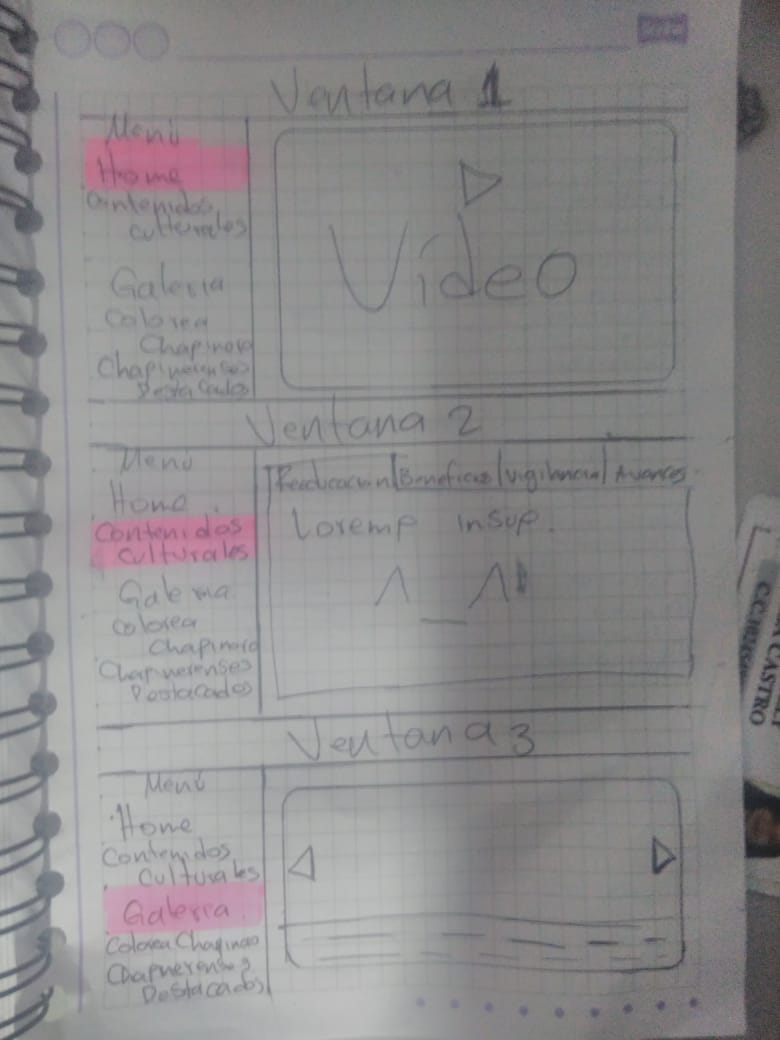 Ventana 1
Menú
Home
Contenidos
culturales
Galeria
Colorea
Chapinero
Chapinerenses
Destacados
Video
Ventana 2
Menú
Home
Contenidos
culturales
Galeria
Colorea
Chapinero
Chapinerenses
Destacados
Reeducacion|Beneficios|Vigilancia|Avances
Loremp insup.
^_^!
Ventana 3
Menú
Home
Contenidos
Culturales
Galeria
Colorea Chapinero
Chapinerenses
Destacados
CASTRO